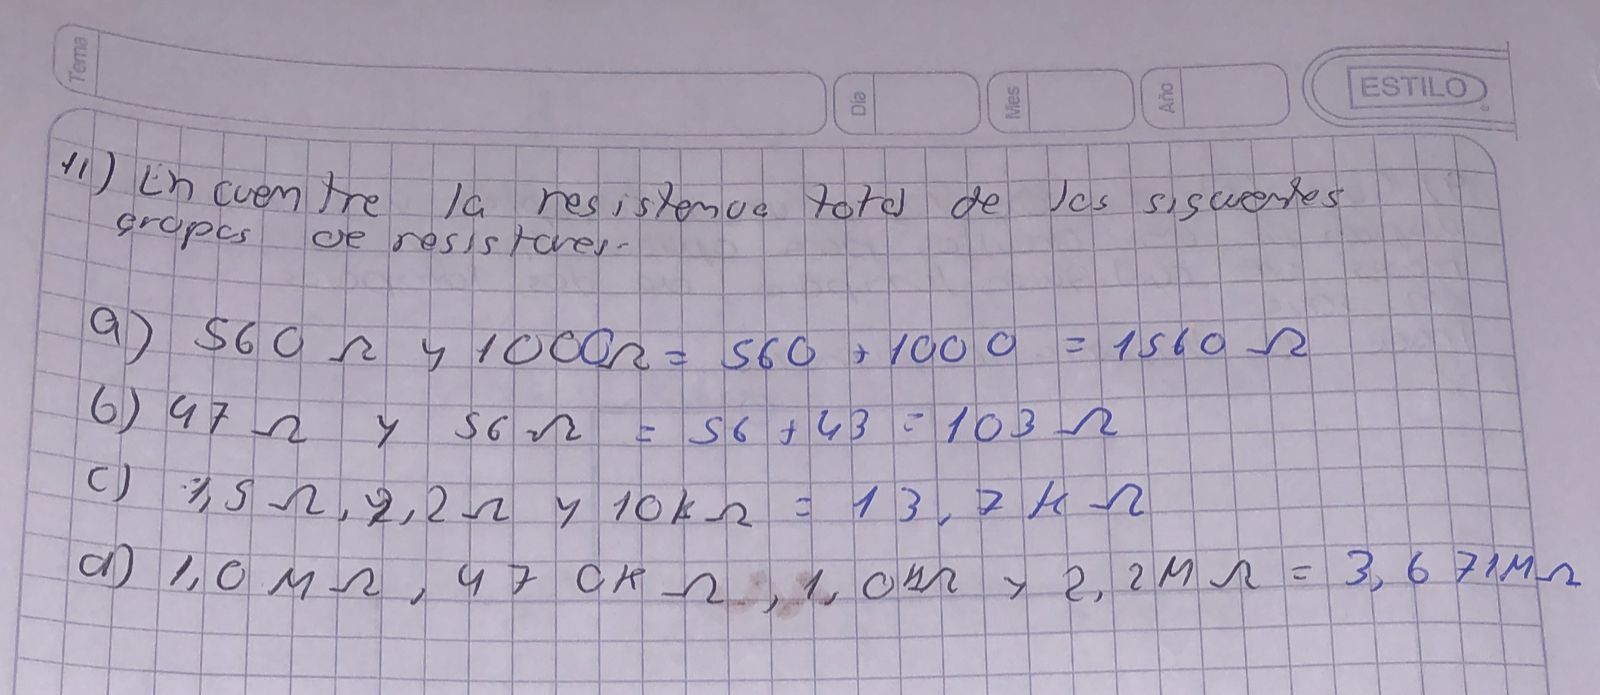 Tema
Día
Mes
Año
ESTILO
11) Encuentre la resistencia total de los siguientes
grupos de resistores.
a) 560 Ω y 1000Ω = 560 + 1000 = 1560 Ω
b) 47 Ω y 56 Ω = 56 + 43 = 103 Ω
c) 1,5 Ω, 2,2 Ω y 10 k Ω = 13,7 K Ω
d) 1,0 M Ω, 470K Ω, 1,0KΩ y 2,2M Ω = 3,671MΩ